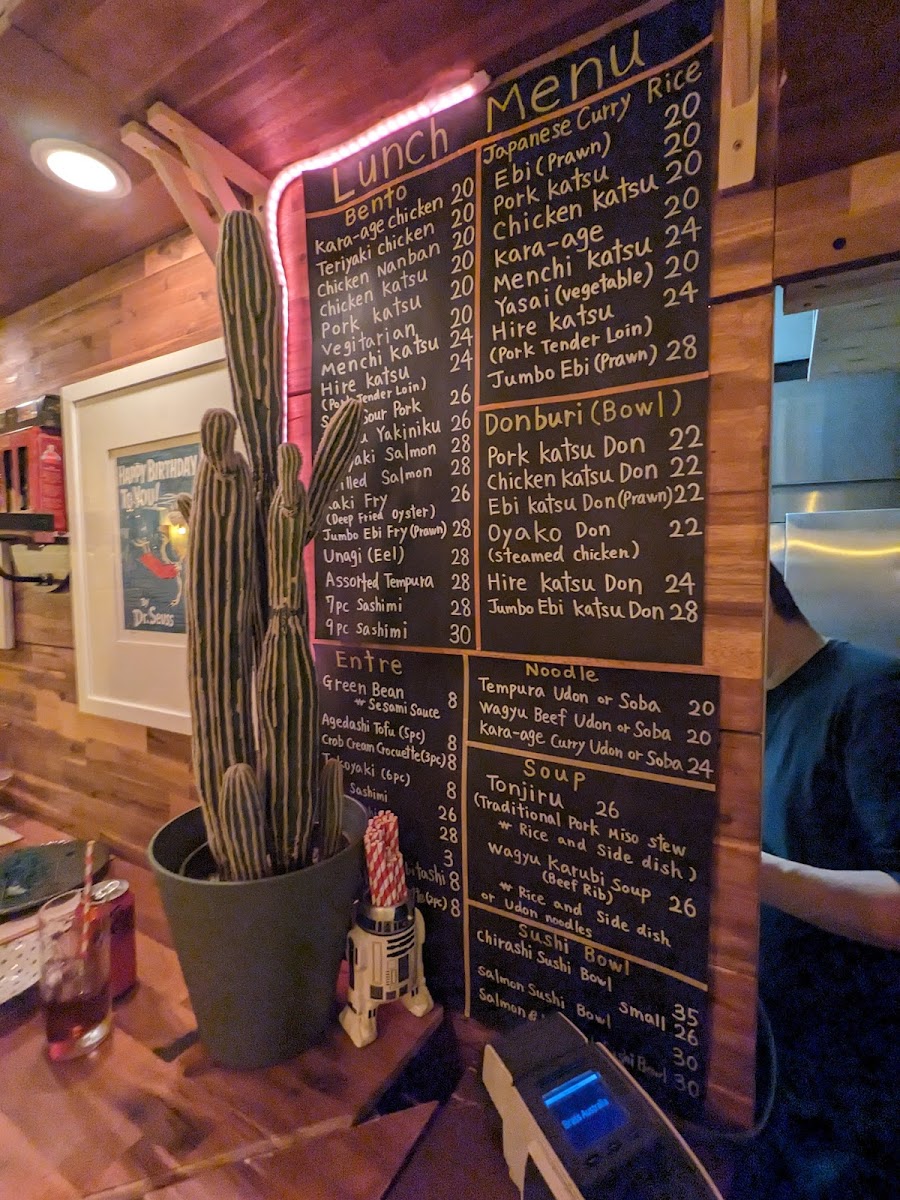 Lunch Menu
Bento
Kara-age chicken 20
Teriyaki chicken 20
Chicken Nanban 20
Chicken katsu 20
Pork katsu 20
Vegitarian 20
Menchi katsu 24
Hire katsu 24
(Pork Tender Loin)
Sour Pork 26
Yakiniku 26
Salmon 28
Salmon 28
Fry 26
(Deep Fried Oyster)
Jumbo Ebi Fry (Prawn) 28
Unagi (Eel) 28
Assorted Tempura 28
7pc Sashimi 28
9pc Sashimi 30
Japanese Curry Rice
Ebi (Prawn) 20
Pork katsu 20
Chicken katsu 20
Kara-age 20
Menchi katsu 24
Yasai (vegetable) 20
Hire katsu 24
(Pork Tender Loin)
Jumbo Ebi (Prawn) 28
Donburi (Bowl)
Pork katsu Don 22
Chicken katsu Don 22
Ebi katsu Don (Prawn) 22
Oyako Don 22
(steamed chicken)
Hire katsu Don 24
Jumbo Ebi katsu Don 28
Entre
Green Bean 8
* Sesami Sauce
Agedashi Tofu (5pc) 8
Crab Cream Crocuette (3pc) 8
Takoyaki (6pc) 8
Sashimi
26
28
3
8
8
Noodle
Tempura Udon or Soba 20
Wagyu Beef Udon or Soba 20
Kara-age Curry Udon or Soba 24
Soup
Tonjiru 26
(Traditional Pork Miso stew
* Rice and Side dish)
Wagyu Karubi Soup 26
(Beef Rib)
* Rice and Side dish
or Udon noodles
Sushi Bowl
Chirashi Sushi Bowl 35
small 26
Salmon Sushi Bowl 30
Salmon
Bowl 30
HAPPY BIRTHDAY
TO YOU!
By
Dr. Seuss
Australia